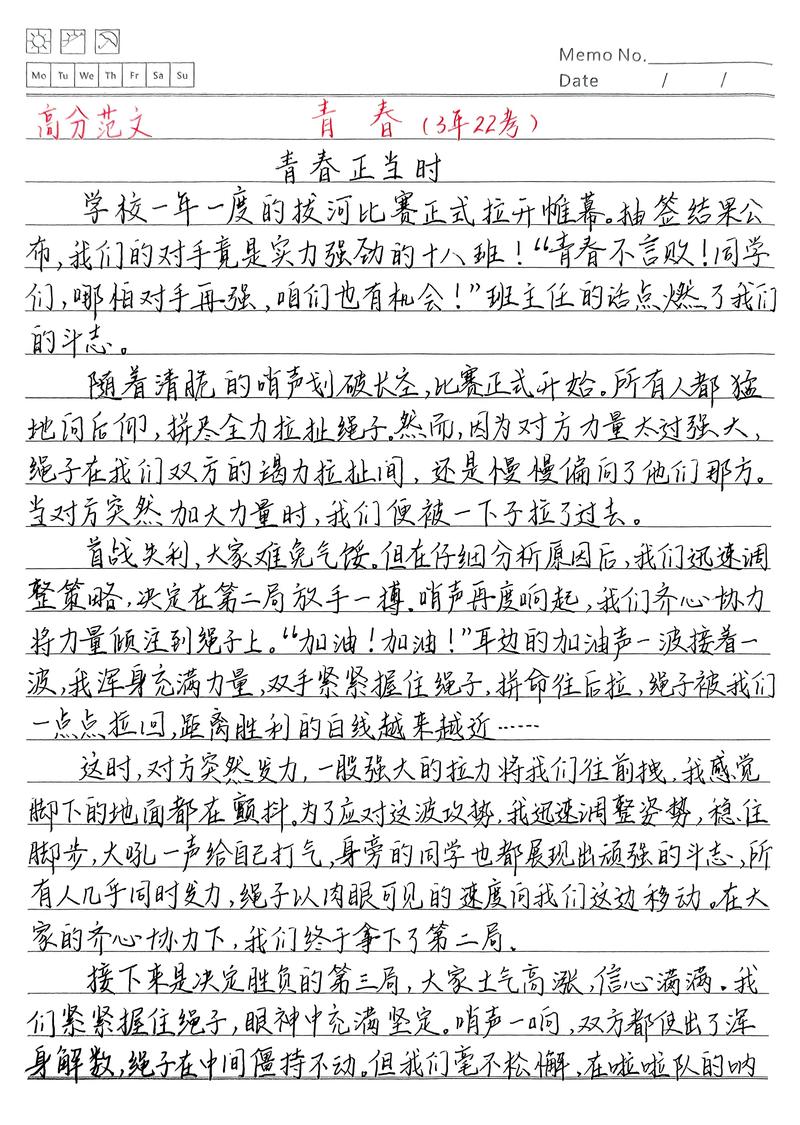 Memo No.
Mo Tu We Th Fr Sa Su
Date / /
高分范文 青春（3年22考）
青春正当时
学校一年一度的拔河比赛正式拉开帷幕。抽签结果公
布，我们的对手竟是实力强劲的十八班！“青春不言败！同学
们，哪怕对手再强，咱们也有机会！”班主任的话点燃了我们
的斗志。
随着清脆的哨声划破长空，比赛正式开始。所有人都猛
地向后仰，拼尽全力拉扯绳子。然而，因为对方力量太过强大，
绳子在我们双方的竭力拉扯间，还是慢慢偏向了他们那方。
当对方突然加大力量时，我们便被一下子拉了过去。
首战失利，大家难免气馁。但在仔细分析原因后，我们迅速调
整策略，决定在第二局放手一搏。哨声再度响起，我们齐心协力
将力量倾注到绳子上。“加油！加油！”耳边的加油声一波接着一
波，我浑身充满力量，双手紧紧握住绳子，拼命往后拉，绳子被我们
一点点拉回，距离胜利的白线越来越近……
这时，对方突然发力，一股强大的拉力将我们往前拽，我感觉
脚下的地面都在颤抖。为了应对这波攻势，我迅速调整姿势，稳住
脚步，大吼一声给自己打气，身旁的同学也都展现出顽强的斗志，所
有人几乎同时发力，绳子以肉眼可见的速度向我们这边移动。在大
家的齐心协力下，我们终于拿下了第二局。
接下来是决定胜负的第三局，大家士气高涨，信心满满。我
们紧紧握住绳子，眼神中充满坚定。哨声一响，双方都使出了浑
身解数，绳子在中间僵持不动。但我们毫不松懈，在啦啦队的呐